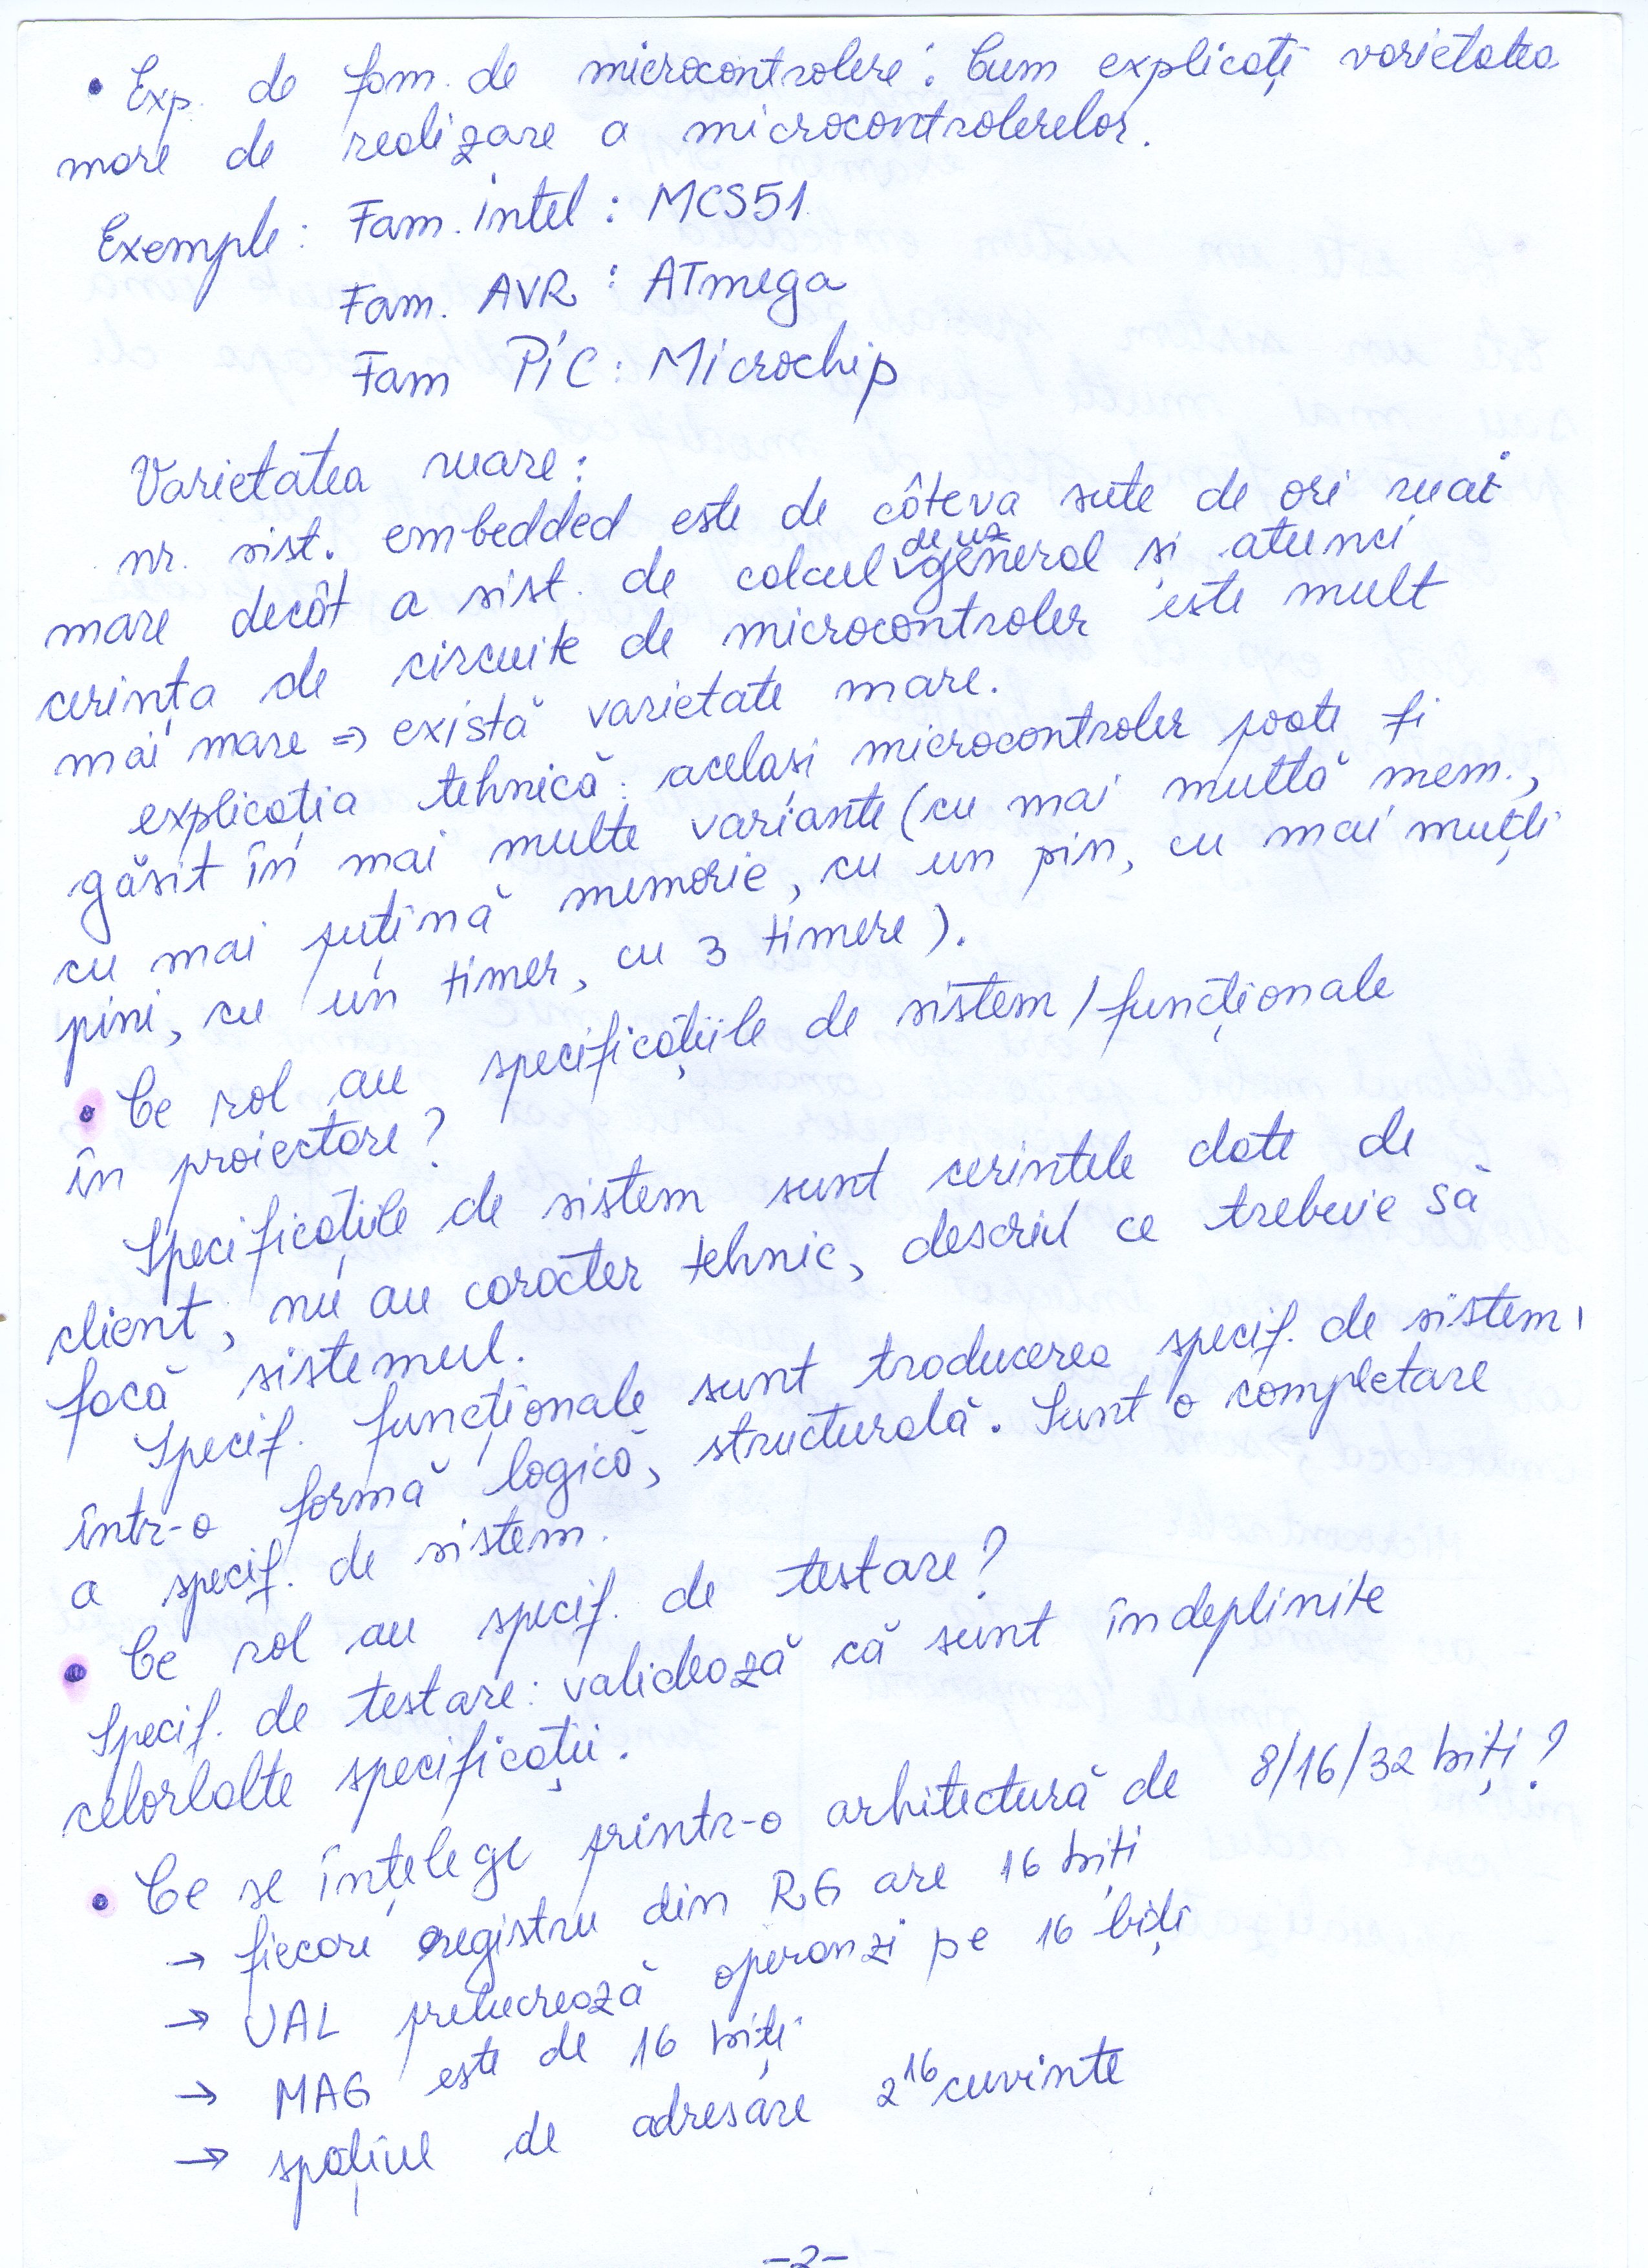 • Exp. de fam. de microcontrolere. Cum explicați varietatea
mare de realizare a microcontrolerelor.
Exemple: Fam. intel: MCS51
Fam. AVR: ATmega
Fam PIC: Microchip
Varietatea mare:
nr. sist. embedded este de câteva sute de ori mai
mare decât a sist. de calcul de uz general și atunci
cerința de circuite de microcontroler este mult
mai mare => există varietate mare.
explicația tehnică: același microcontroler poate fi
găsit în mai multe variante (cu mai multă mem.,
cu mai puțină memorie, cu un pin, cu mai mulți
pini, cu un timer, cu 3 timere).
• Ce rol au specificațiile de sistem / funcționale
în proiectare?
Specificațiile de sistem sunt cerintele date de
client, nu au caracter tehnic, descriu ce trebuie să
facă sistemul.
Specif. funcționale sunt traducerea specif. de sistem,
într-o formă logică, structurală. Sunt o completare
a specif. de sistem.
• Ce rol au specif. de testare?
Specif. de testare: validează că sunt îndeplinite
celorlalte specificații.
• Ce se înțelege printr-o arhitectură de 8/16/32 biți?
→ fiecare registru din RG are 16 biți
→ UAL prelucrează operanzi pe 16 biți
→ MAG este de 16 biți
→ spațiul de adresare 2¹⁶ cuvinte
-2-